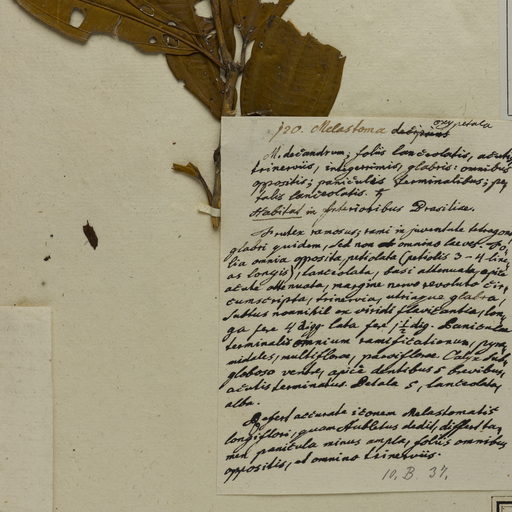 120. Melastoma decipiens oxypetala
M. decandrum; foliis lanceolatis, acutis,
trinerviis, integerrimis, glabris: omnibus
oppositis; paniculis terminalibus; pe,
talis lanceolatis. ♄
Habitat in interioribus Brasiliae.
Frutex ramosus; rami in juventute tetragoni
glabri quidem, sed non omnino laeves. Fo,
lia omnia opposita, petiolata (petiolis 3-4 line,
as longis), lanceolata, basi attenuata, apice
acute attenuata, margine nervo revoluto cir,
cumscripta, trinervia, utrinque glabra,
subtus nonnihil ex viridi flavicantia, lon,
ga fere 4 digg. lata fere 1½ dig. Paniculae
terminales omnium ramificationum, pyra,
midales, multiflorae, parviflorae. Calyx sub,
globoso ventre, apice dentibus 5 brevibus,
acutis terminatus. Petala 5, lanceolata,
alba.
Refert accurate iconem Melastomatis
longiflori, quam Aubletus dedit, differt ta,
men panicula minus ampla, foliis omnibus
oppositis, et omnino trinerviis.
10. B. 37.